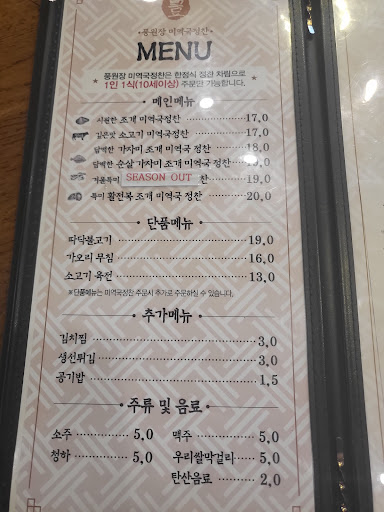 ·풍원장 미역국정찬·
MENU
풍원장 미역국정찬은 한정식 정찬 차림으로
1인 1식(10세이상) 주문만 가능합니다.
· 메인메뉴 ·
시원한 조개 미역국정찬 17,0
깊은맛 소고기 미역국정찬 17,0
담백한 가자미 조개 미역국 정찬 18,0
담백한 순살 가자미 조개 미역국 정찬 9,0
겨울특미 SEASON OUT 찬 19,0
특미 활전복 조개 미역국 정찬 20,0
· 단품메뉴 ·
따닥불고기 19,0
가오리 무침 16,0
소고기 육전 13,0
※단품메뉴는 미역국정찬 주문시 추가로 주문하실 수 있습니다.
· 추가메뉴 ·
김치찜 3,0
생선튀김 3,0
공기밥 1,5
· 주류 및 음료 ·
소주 5,0 맥주 5,0
청하 5,0 우리쌀막걸리 5,0
탄산음료 2,0